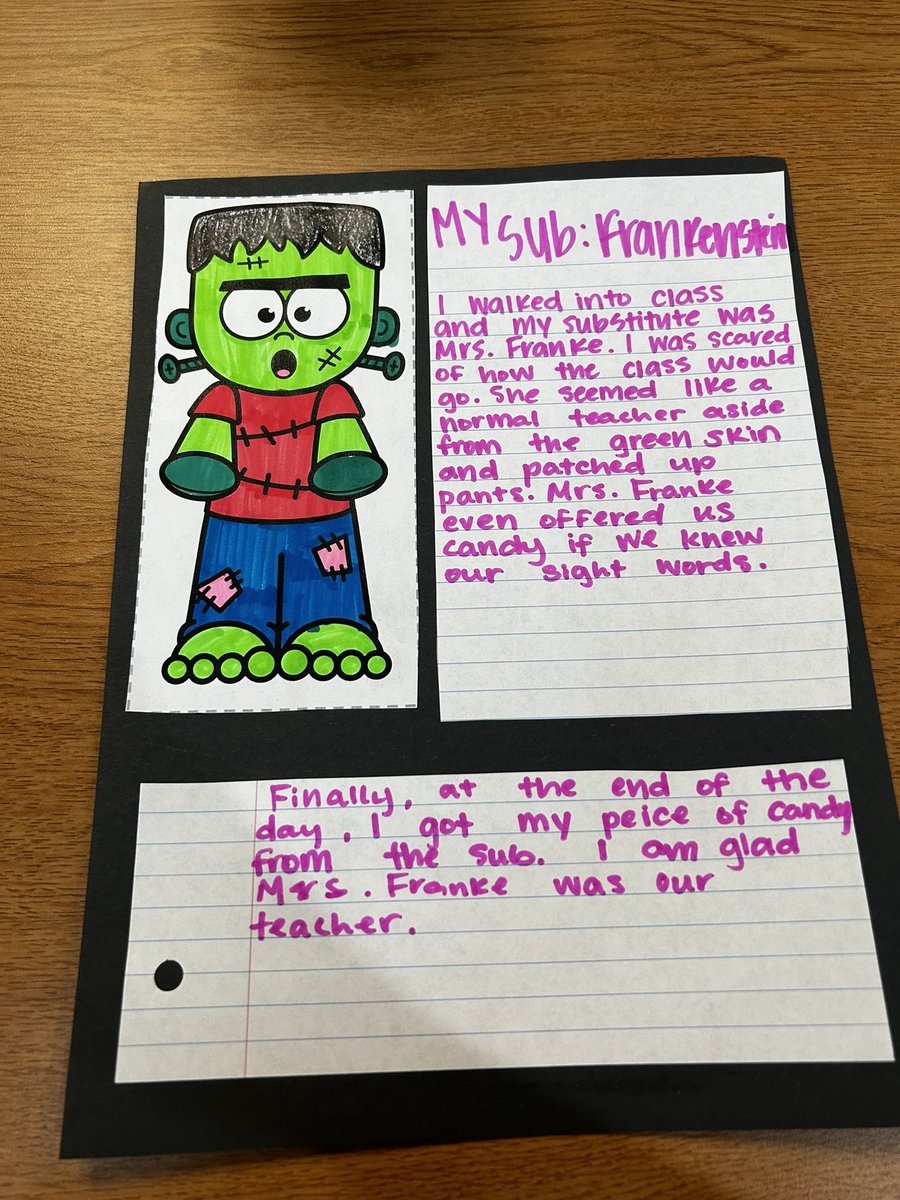 My sub: Frankenstein
I walked into class
and my substitute was
Mrs. Franke. I was scared
of how the class would
go. She seemed like a
normal teacher aside
from the green skin
and patched up
pants. Mrs. Franke
even offered us
candy if we knew
our sight words.
Finally, at the end of the
day, I got my peice of candy
from the sub. I am glad
Mrs. Franke was our
teacher.